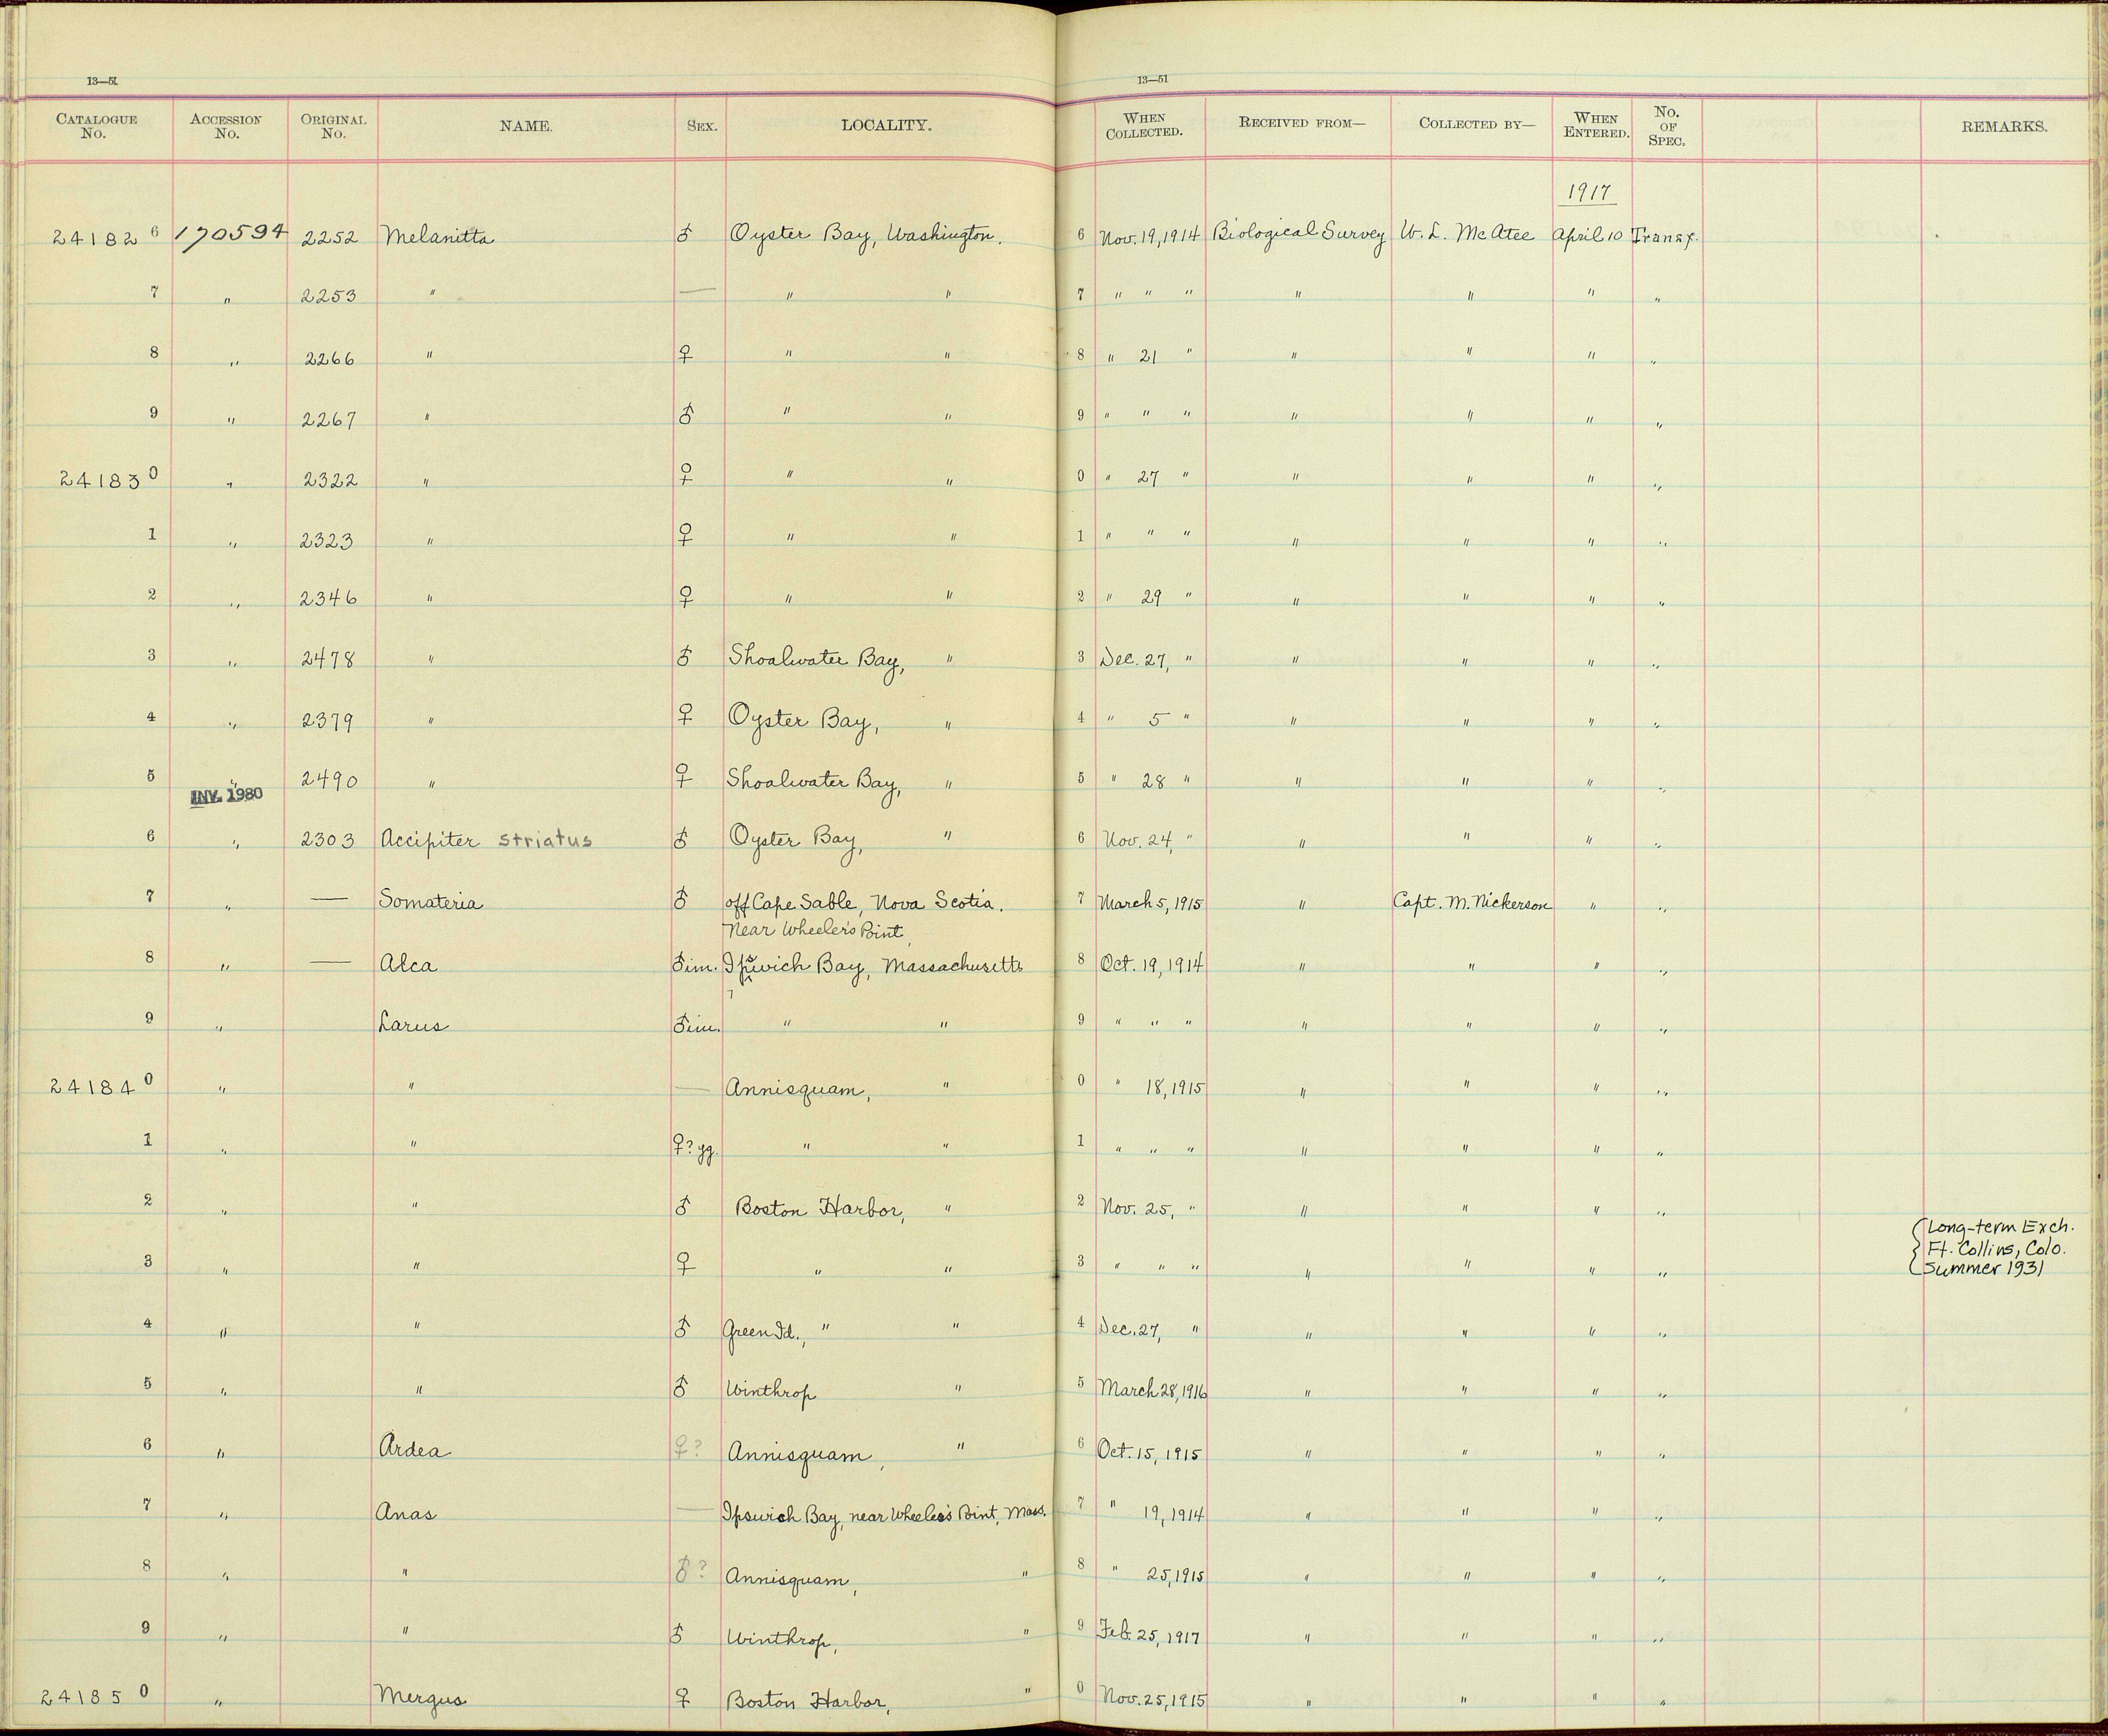 13—51 13—51
CATALOGUE No. ACCESSION No. ORIGINAL No. NAME. SEX. LOCALITY. WHEN COLLECTED. RECEIVED FROM— COLLECTED BY— WHEN ENTERED. No. OF SPEC. REMARKS.
1917
241826 170594 2252 Melanitta ♂ Oyster Bay, Washington. 6 Nov. 19, 1914 Biological Survey W. L. McAtee April 10 Transf.
7 " 2253 " — " " 7 " " " " " " "
8 " 2266 " ♀ " " 8 " 21 " " " " "
9 " 2267 " ♂ " " 9 " " " " " " "
241830 " 2322 " ♀ " " 0 " 27 " " " " "
1 " 2323 " ♀ " " 1 " " " " " " "
2 " 2346 " ♀ " " 2 " 29 " " " " "
3 " 2478 " ♂ Shoalwater Bay, " 3 Dec. 27, " " " " "
4 " 2379 " ♀ Oyster Bay, " 4 " 5 " " " " "
5 " 2490 " ♀ Shoalwater Bay, " 5 " 28 " " " " "
INV. 1980
6 " 2303 Accipiter striatus ♂ Oyster Bay, " 6 Nov. 24, " " " " "
7 " — Somateria ♂ off Cape Sable, Nova Scotia. 7 March 5, 1915 " Capt. M. Nickerson " "
Near Wheeler's Point,
8 " — Alca ♂ im. Ipswich Bay, Massachusetts 8 Oct. 19, 1914 " " " "
9 " Larus ♂ im. " " 9 " " " " " " "
241840 " " — Annisquam, " 0 " 18, 1915 " " " "
1 " " ♀? yg. " " 1 " " " " " " "
2 " " ♂ Boston Harbor, " 2 Nov. 25, " " " " "
Long-term Exch.
Ft. Collins, Colo.
Summer 1931
3 " " ♀ " " 3 " " " " " " "
4 " " ♂ Green Id., " " 4 Dec. 27, " " " " "
5 " " ♂ Winthrop " 5 March 28, 1916 " " " "
6 " Ardea ♀? Annisquam, " 6 Oct. 15, 1915 " " " "
7 " Anas — Ipswich Bay, near Wheeler's Point, Mass. 7 " 19, 1914 " " " "
8 " " ♂? Annisquam, " 8 " 25, 1915 " " " "
9 " " ♂ Winthrop, " 9 Feb. 25, 1917 " " " "
241850 " Mergus ♀ Boston Harbor, " 0 Nov. 25, 1915 " " " "